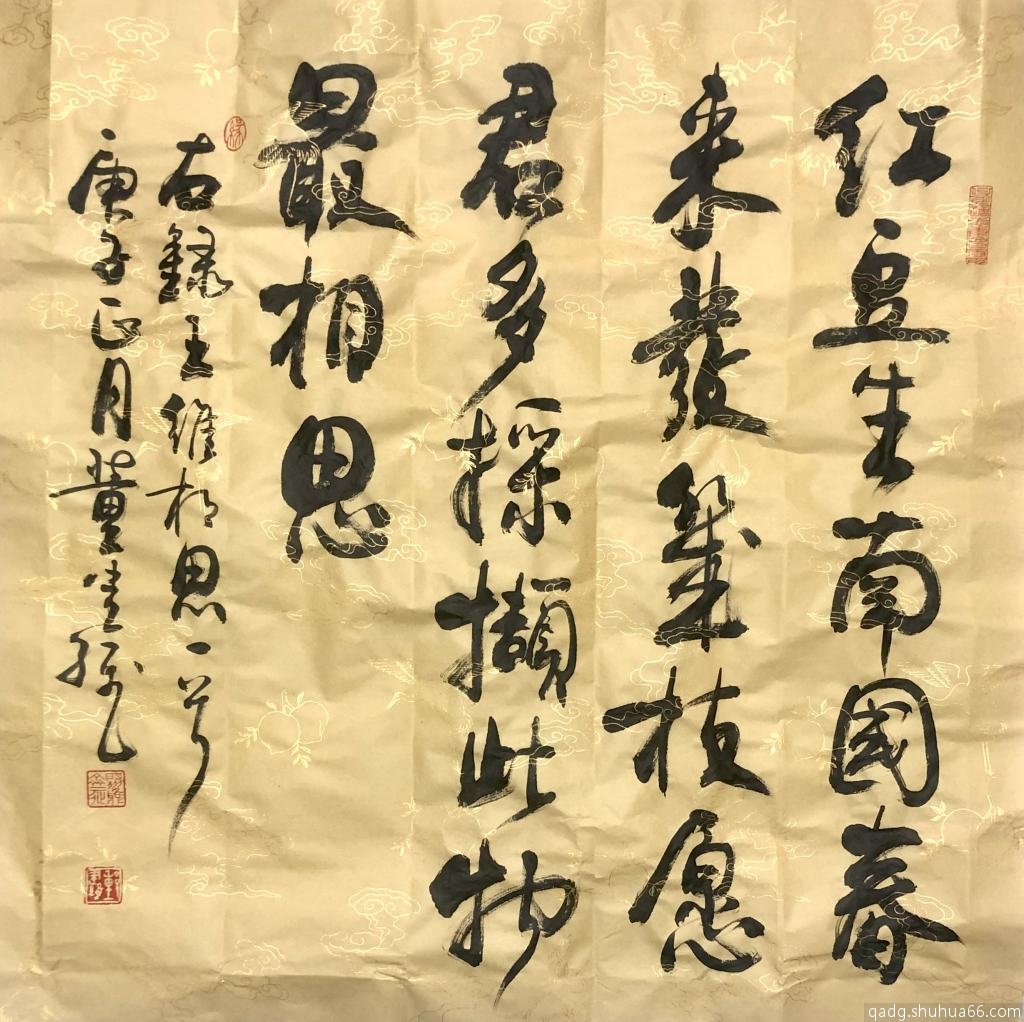 红豆生南國春
来發幾枝愿
君多採擷此物
最相思
右録王维相思一首
庚子正月黄
qadg.shuhua66.com